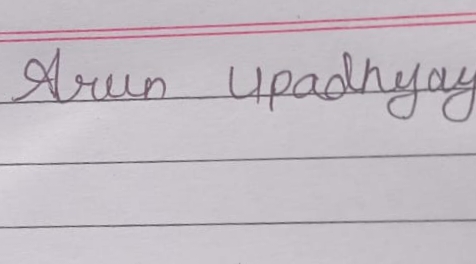 Arun Upadhyay